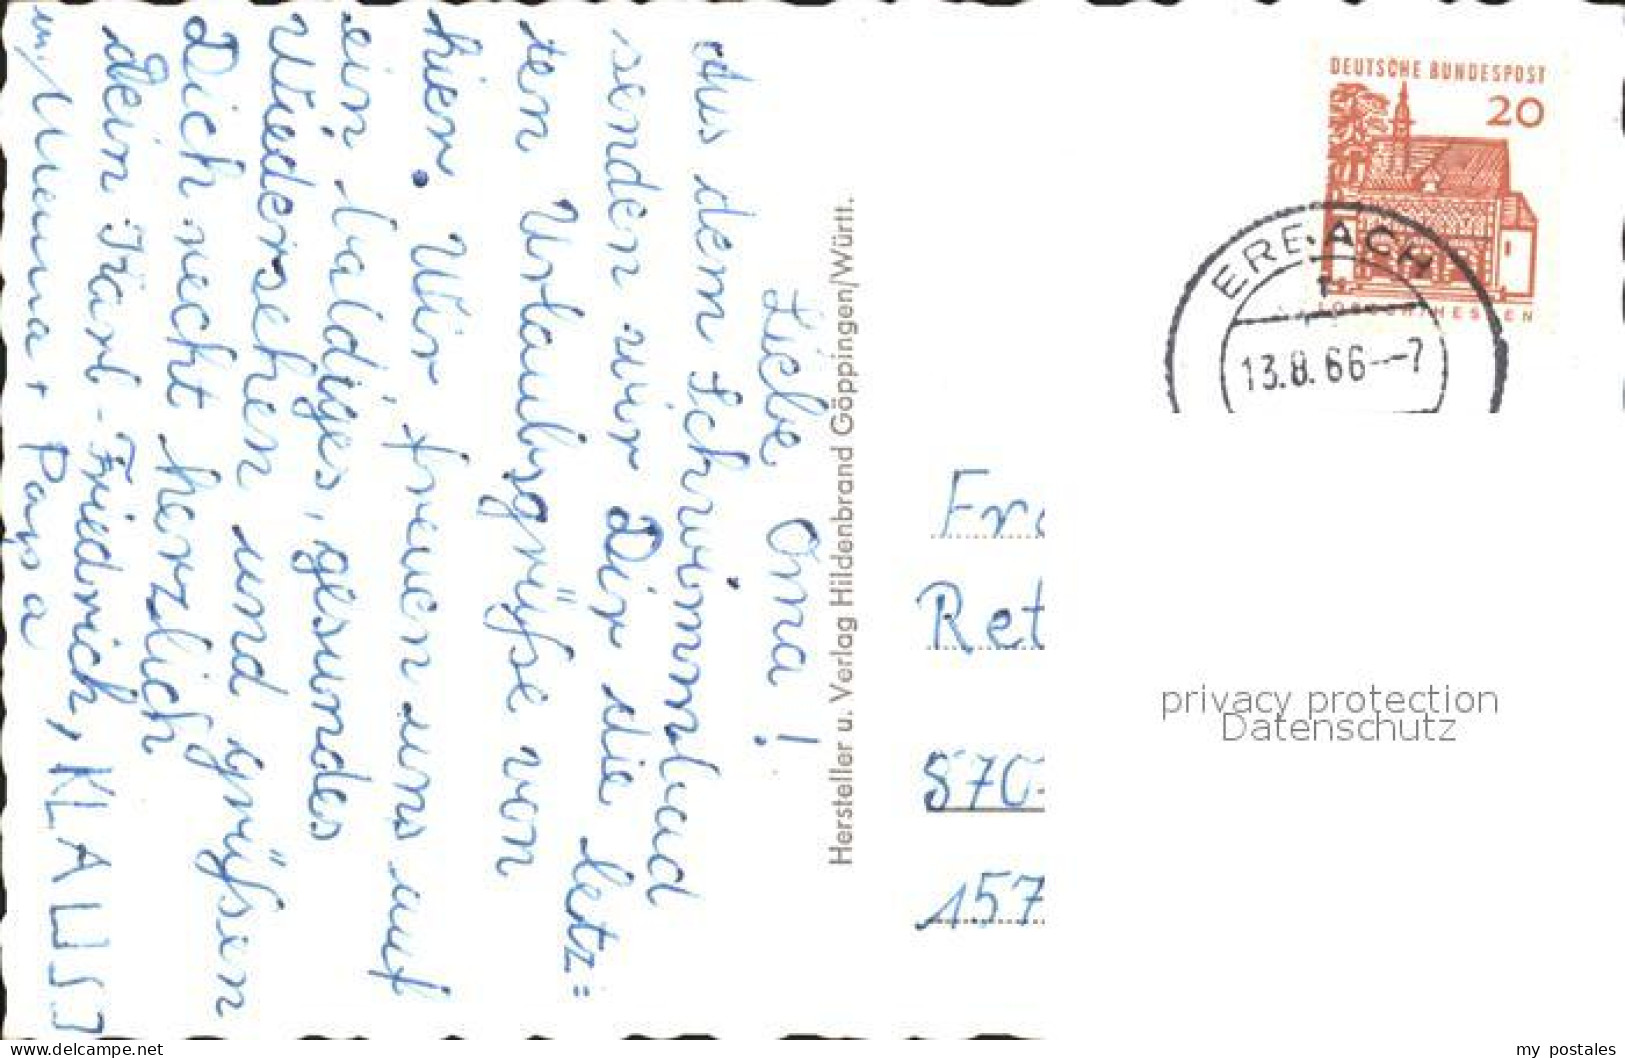 Liebe Oma!
Aus dem Schwimmbad
senden wir Dir die letz=
ten Urlaubsgrüße von
hier. Wir freuen uns auf
ein baldiges, gesundes
Wiedersehen und grüßen
Dich recht herzlich
Dein Karl-Friedrich, KLAUS
u. Mama + Papa
Hersteller u. Verlag Hildenbrand Göppingen/Württ.
DEUTSCHE BUNDESPOST
20
LORSCH/HESSEN
ERBACH
13.8.66--7
Fra
Ret
570
157
privacy protection
Datenschutz
www.delcampe.net
my_postales